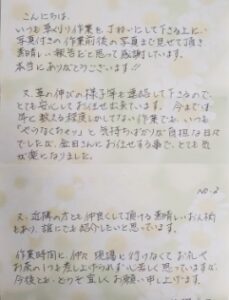 こんにちは。
いつも草刈り作業を丁寧にして下さる上に、
写真付きの作業前後の写真まで見せて頂き
素晴しい報告だと思って感謝しています。
本当にありがとうございます!!
又、草の伸びの様子等を連絡して下さるので、
とても安心してお任せ出来ています。今までは
年に数える程度しかしてない作業でも、いつも
"やらなくちゃッ"と気持ちばかりが負担な日々
でしたが、金田さんにお任せする事で、とても気
が楽になりました。
NO.2
又、近隣の方とも仲良くして頂ける素晴しいお人柄
もあり、誰にでも紹介したいと思っています。
作業時間に、仲々現場に行けなくてお礼や
お茶の1つも差し上げられず心苦しく思っていますが、
今後とも、どうぞ宜しくお願い申し上げます。